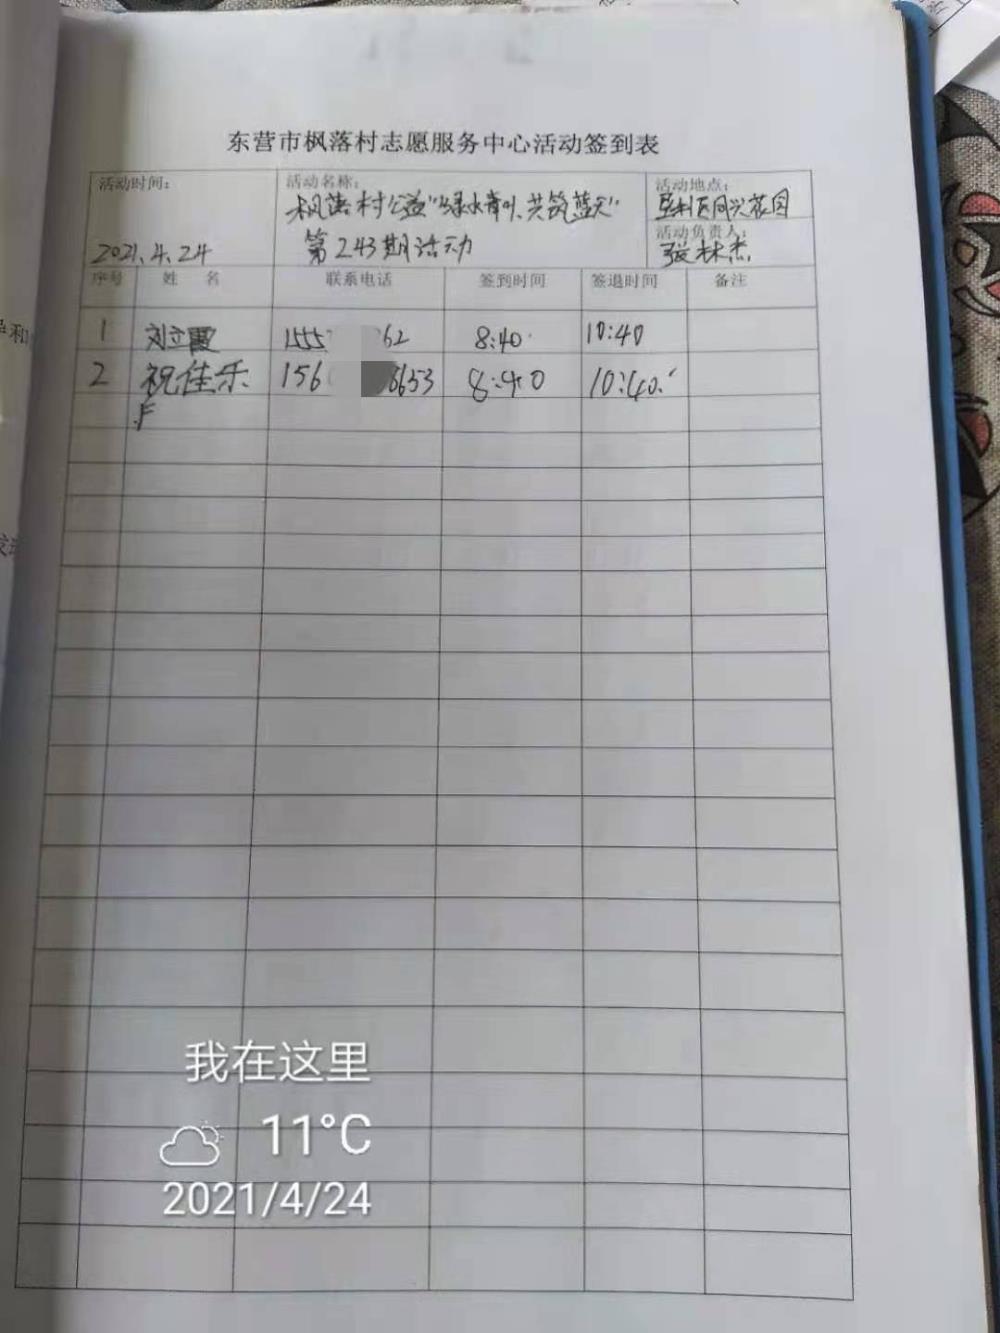 东营市枫落村志愿服务中心活动签到表
活动时间：
2021.4.24
活动名称：
枫落村公益"绿水青山，共筑蓝天"
第243期活动
活动地点：
垦利区同兴花园
活动负责人：
张林杰
序号 姓 名 联系电话 签到时间 签退时间 备注
1 刘立霞 155 62 8:40 10:40
2 祝佳乐 156 8653 8:40 10:40
我在这里
11°C
2021/4/24